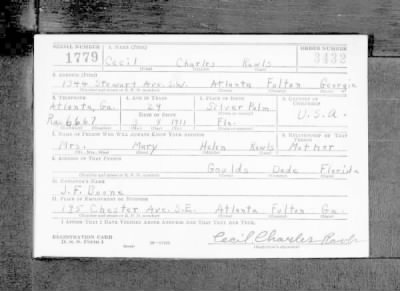 SERIAL NUMBER 1. NAME (Print) ORDER NUMBER
1779 Cecil Charles Rawls 3432
(First) (Middle) (Last)
2. ADDRESS (Print)
1344 Stewart Ave. S.W. Atlanta Fulton Georgia
3. TELEPHONE 4. AGE IN YEARS 5. PLACE OF BIRTH 6. COUNTRY OF CITIZENSHIP
Atlanta, Ga. 29 Silver Palm
DATE OF BIRTH U.S.A.
Ra. 6667 1911 Fla.
7. NAME OF PERSON WHO WILL ALWAYS KNOW YOUR ADDRESS 8. RELATIONSHIP OF THAT PERSON
Mrs. Mary Helen Rawls Mother
9. ADDRESS OF THAT PERSON
Goulds Dade Florida
10. EMPLOYER'S NAME
J.F. Boone
11. PLACE OF EMPLOYMENT OR BUSINESS
195 Chester Ave. S.E. Atlanta Fulton Ga.
I AFFIRM THAT I HAVE VERIFIED ABOVE ANSWERS AND THAT THEY ARE TRUE.
REGISTRATION CARD
D. S. S. Form 1 Cecil Charles Rawls
(Registrant's signature)